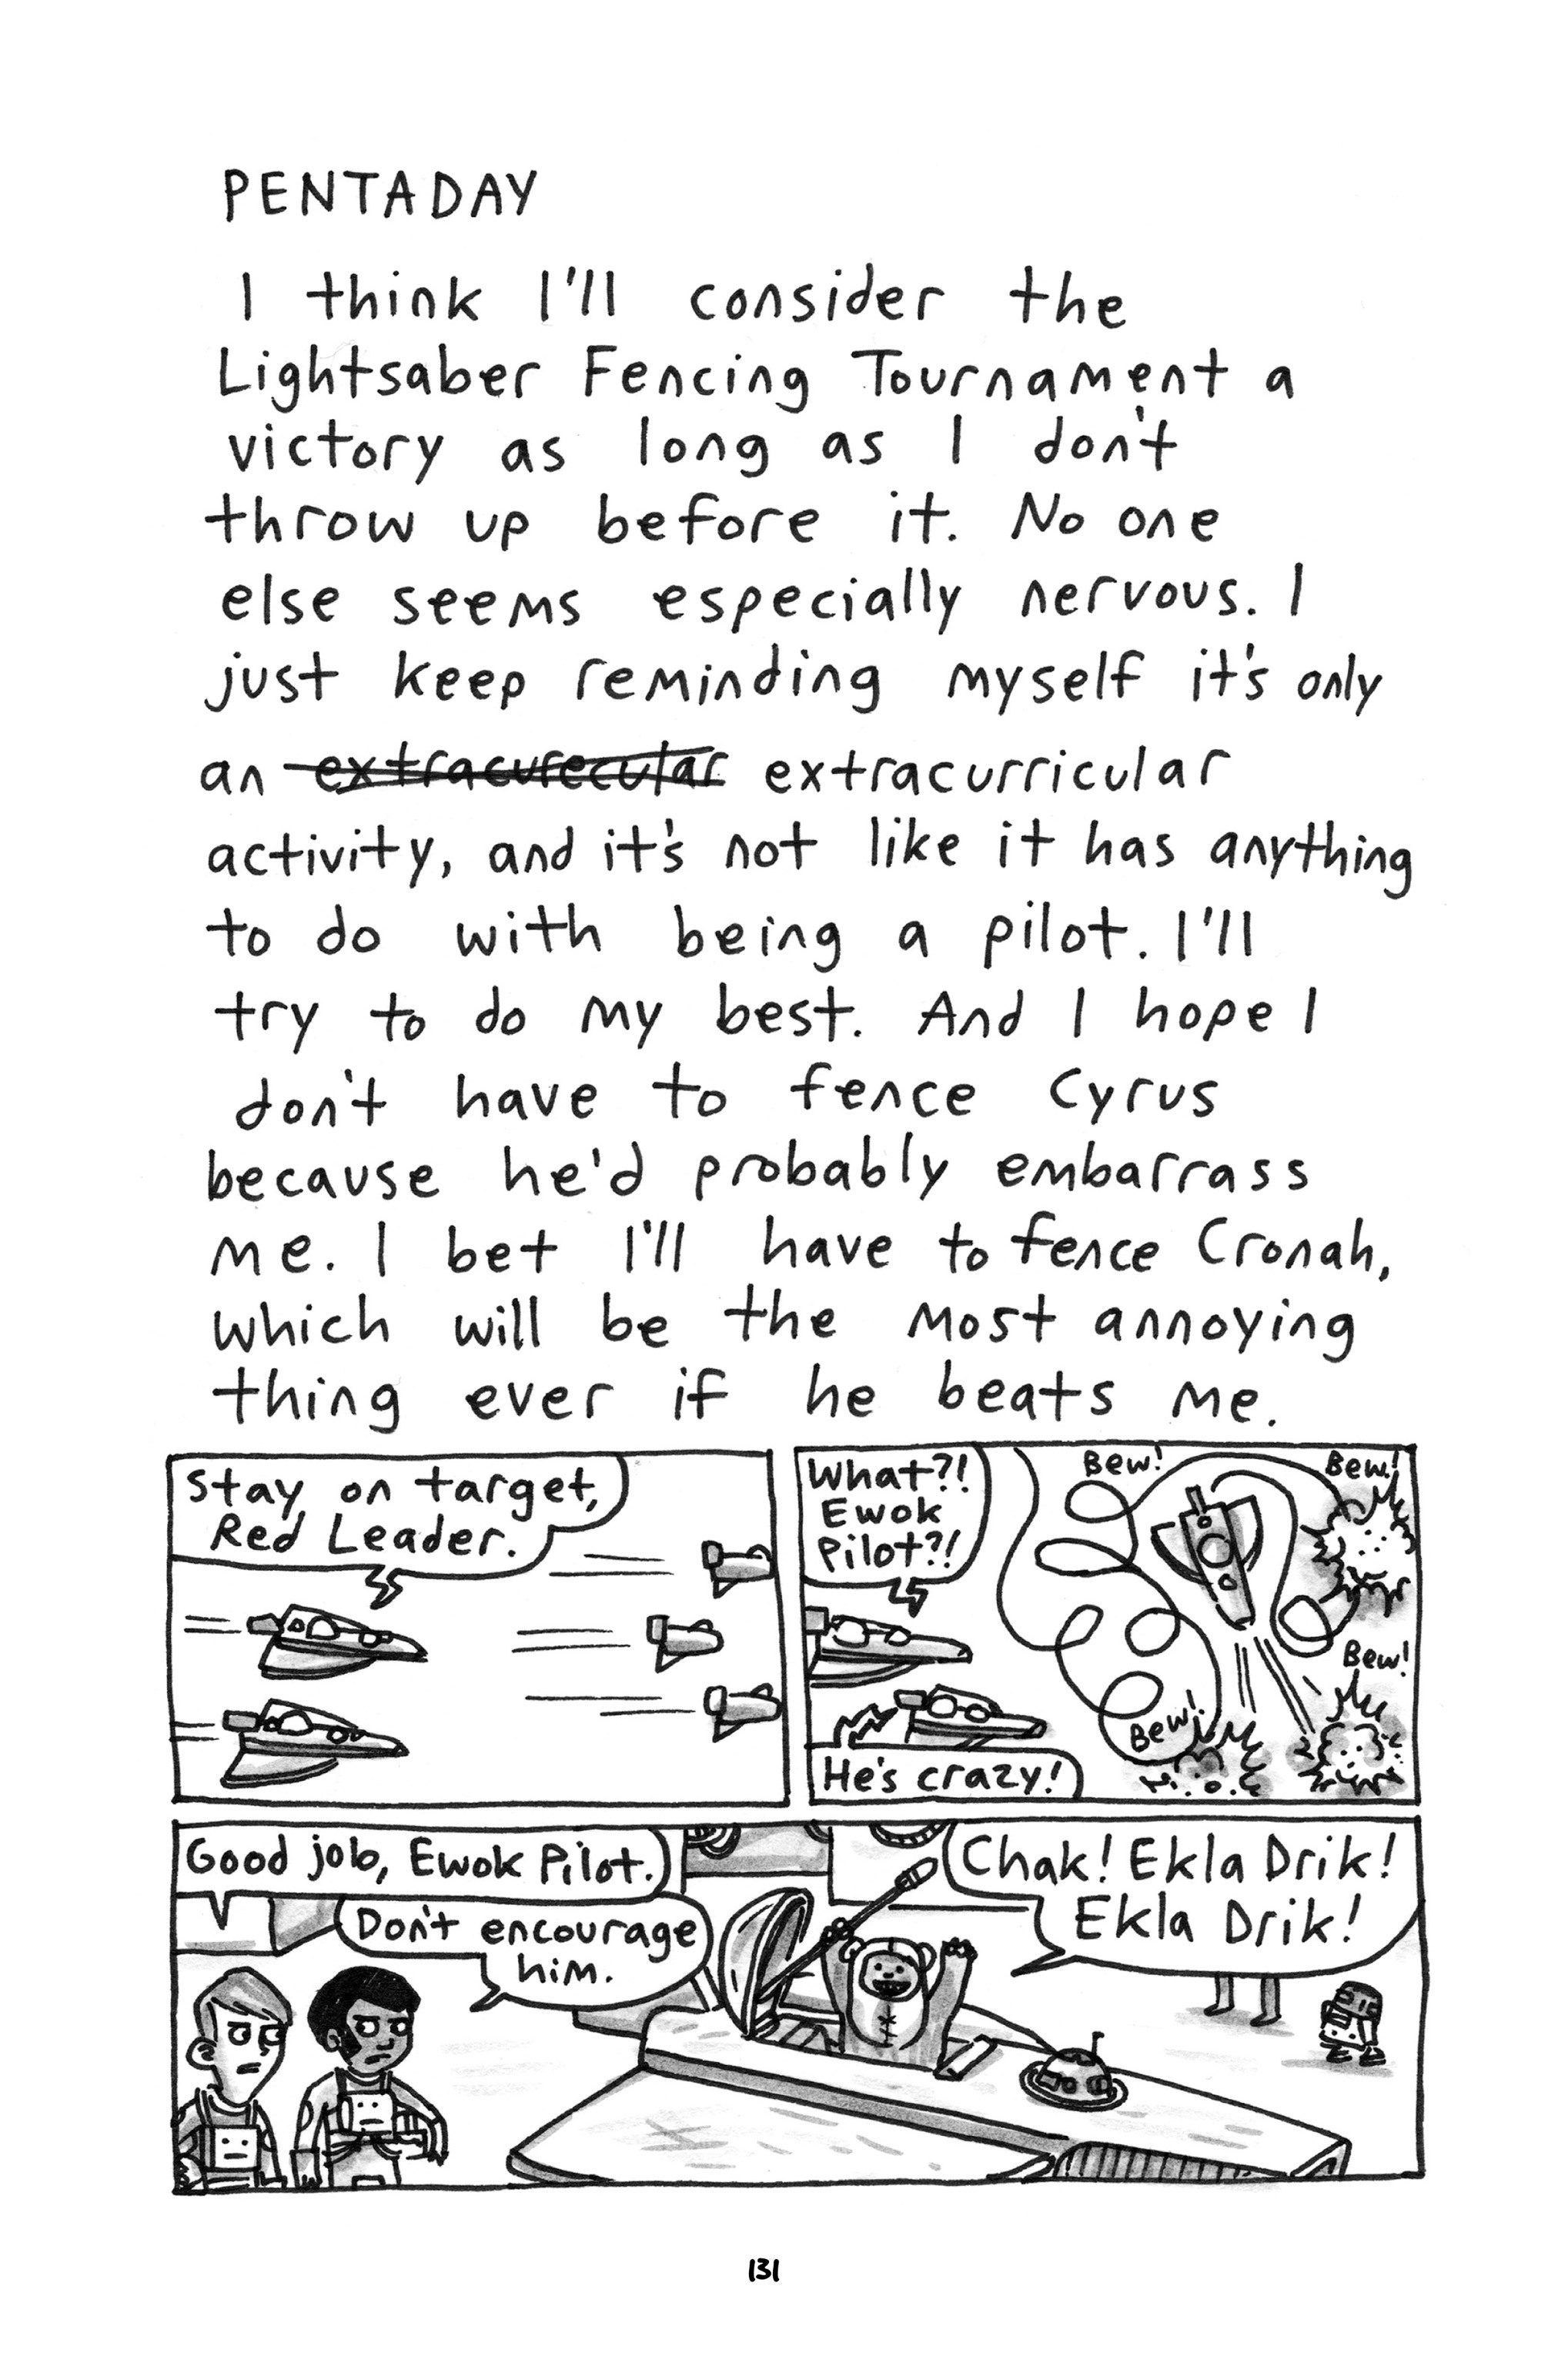 PENTADAY
I think I'll consider the
Lightsaber Fencing Tournament a
victory as long as I don't
throw up before it. No one
else seems especially nervous. I
just keep reminding myself it's only
an extracurecular extracurricular
activity, and it's not like it has anything
to do with being a pilot. I'll
try to do my best. And I hope I
don't have to fence Cyrus
because he'd probably embarrass
me. I bet I'll have to fence Cronah,
which will be the most annoying
thing ever if he beats me.
Stay on target,
Red Leader.
What?!
Ewok
Pilot?!
Bew!
Bew!
Bew!
Bew!
He's crazy!
Good job, Ewok Pilot.
Don't encourage
him.
Chak! Ekla Drik!
Ekla Drik!
131